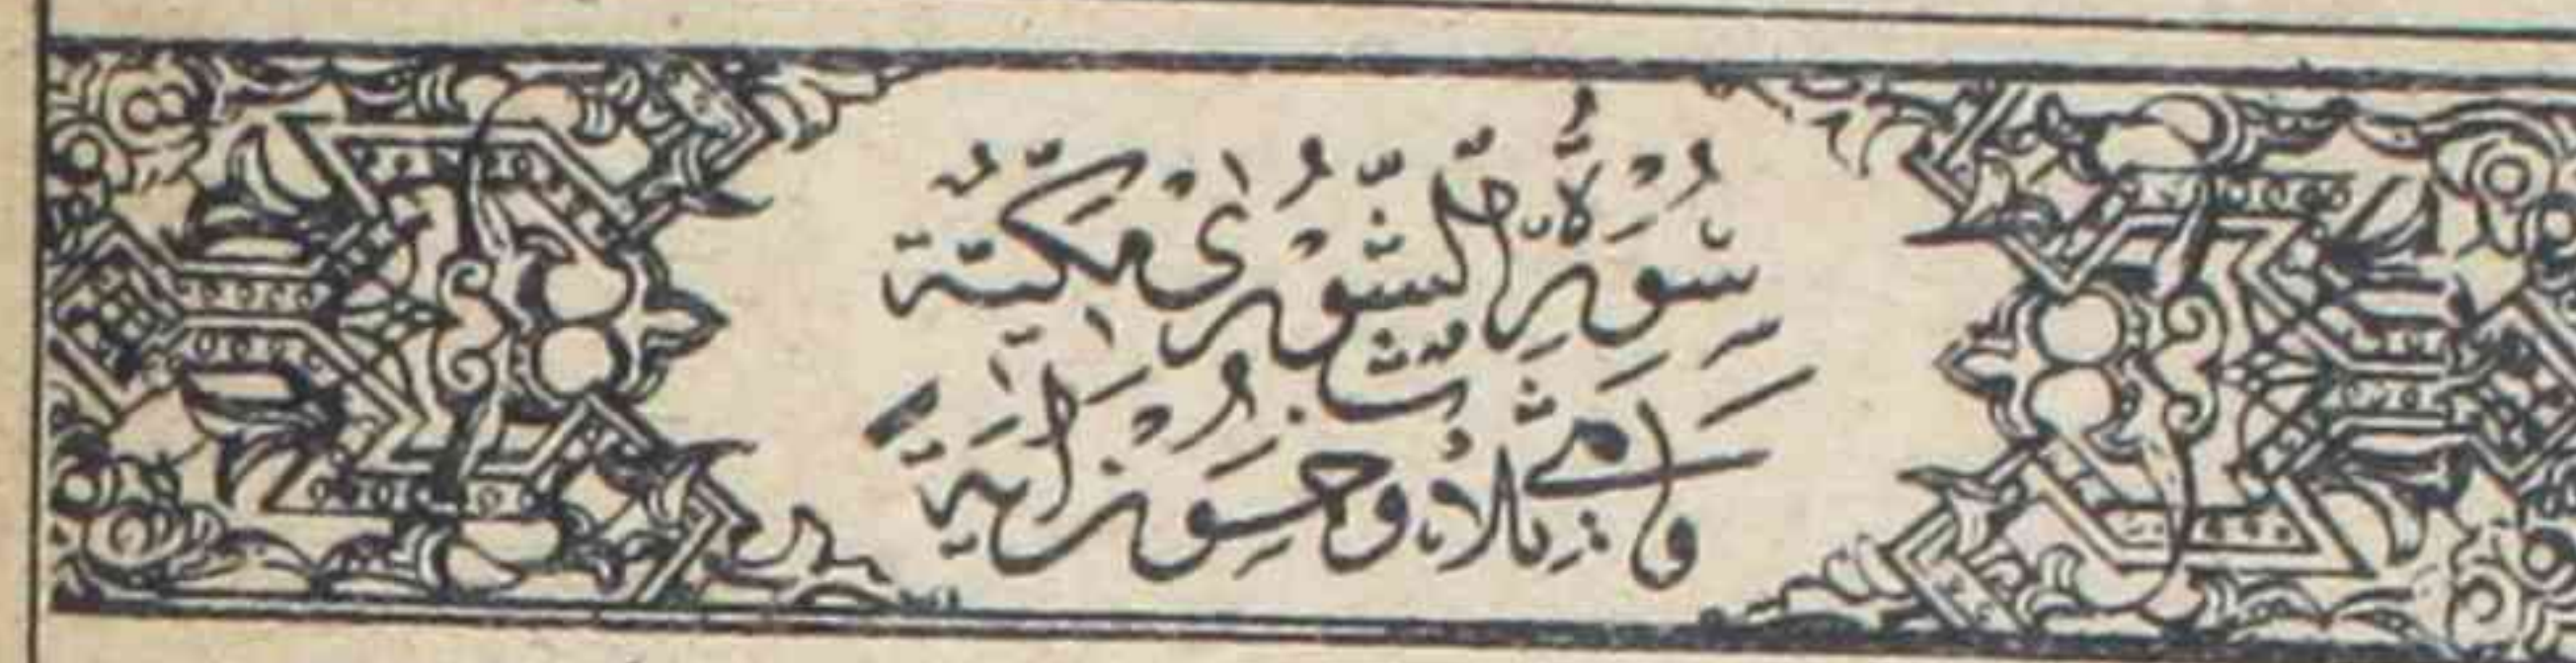 سُوْرَةُ الشُّوْرٰى مَكِّيَّةٌ
وَهِيَ ثَلَاثٌ وَخَمْسُوْنَ اٰيَةً